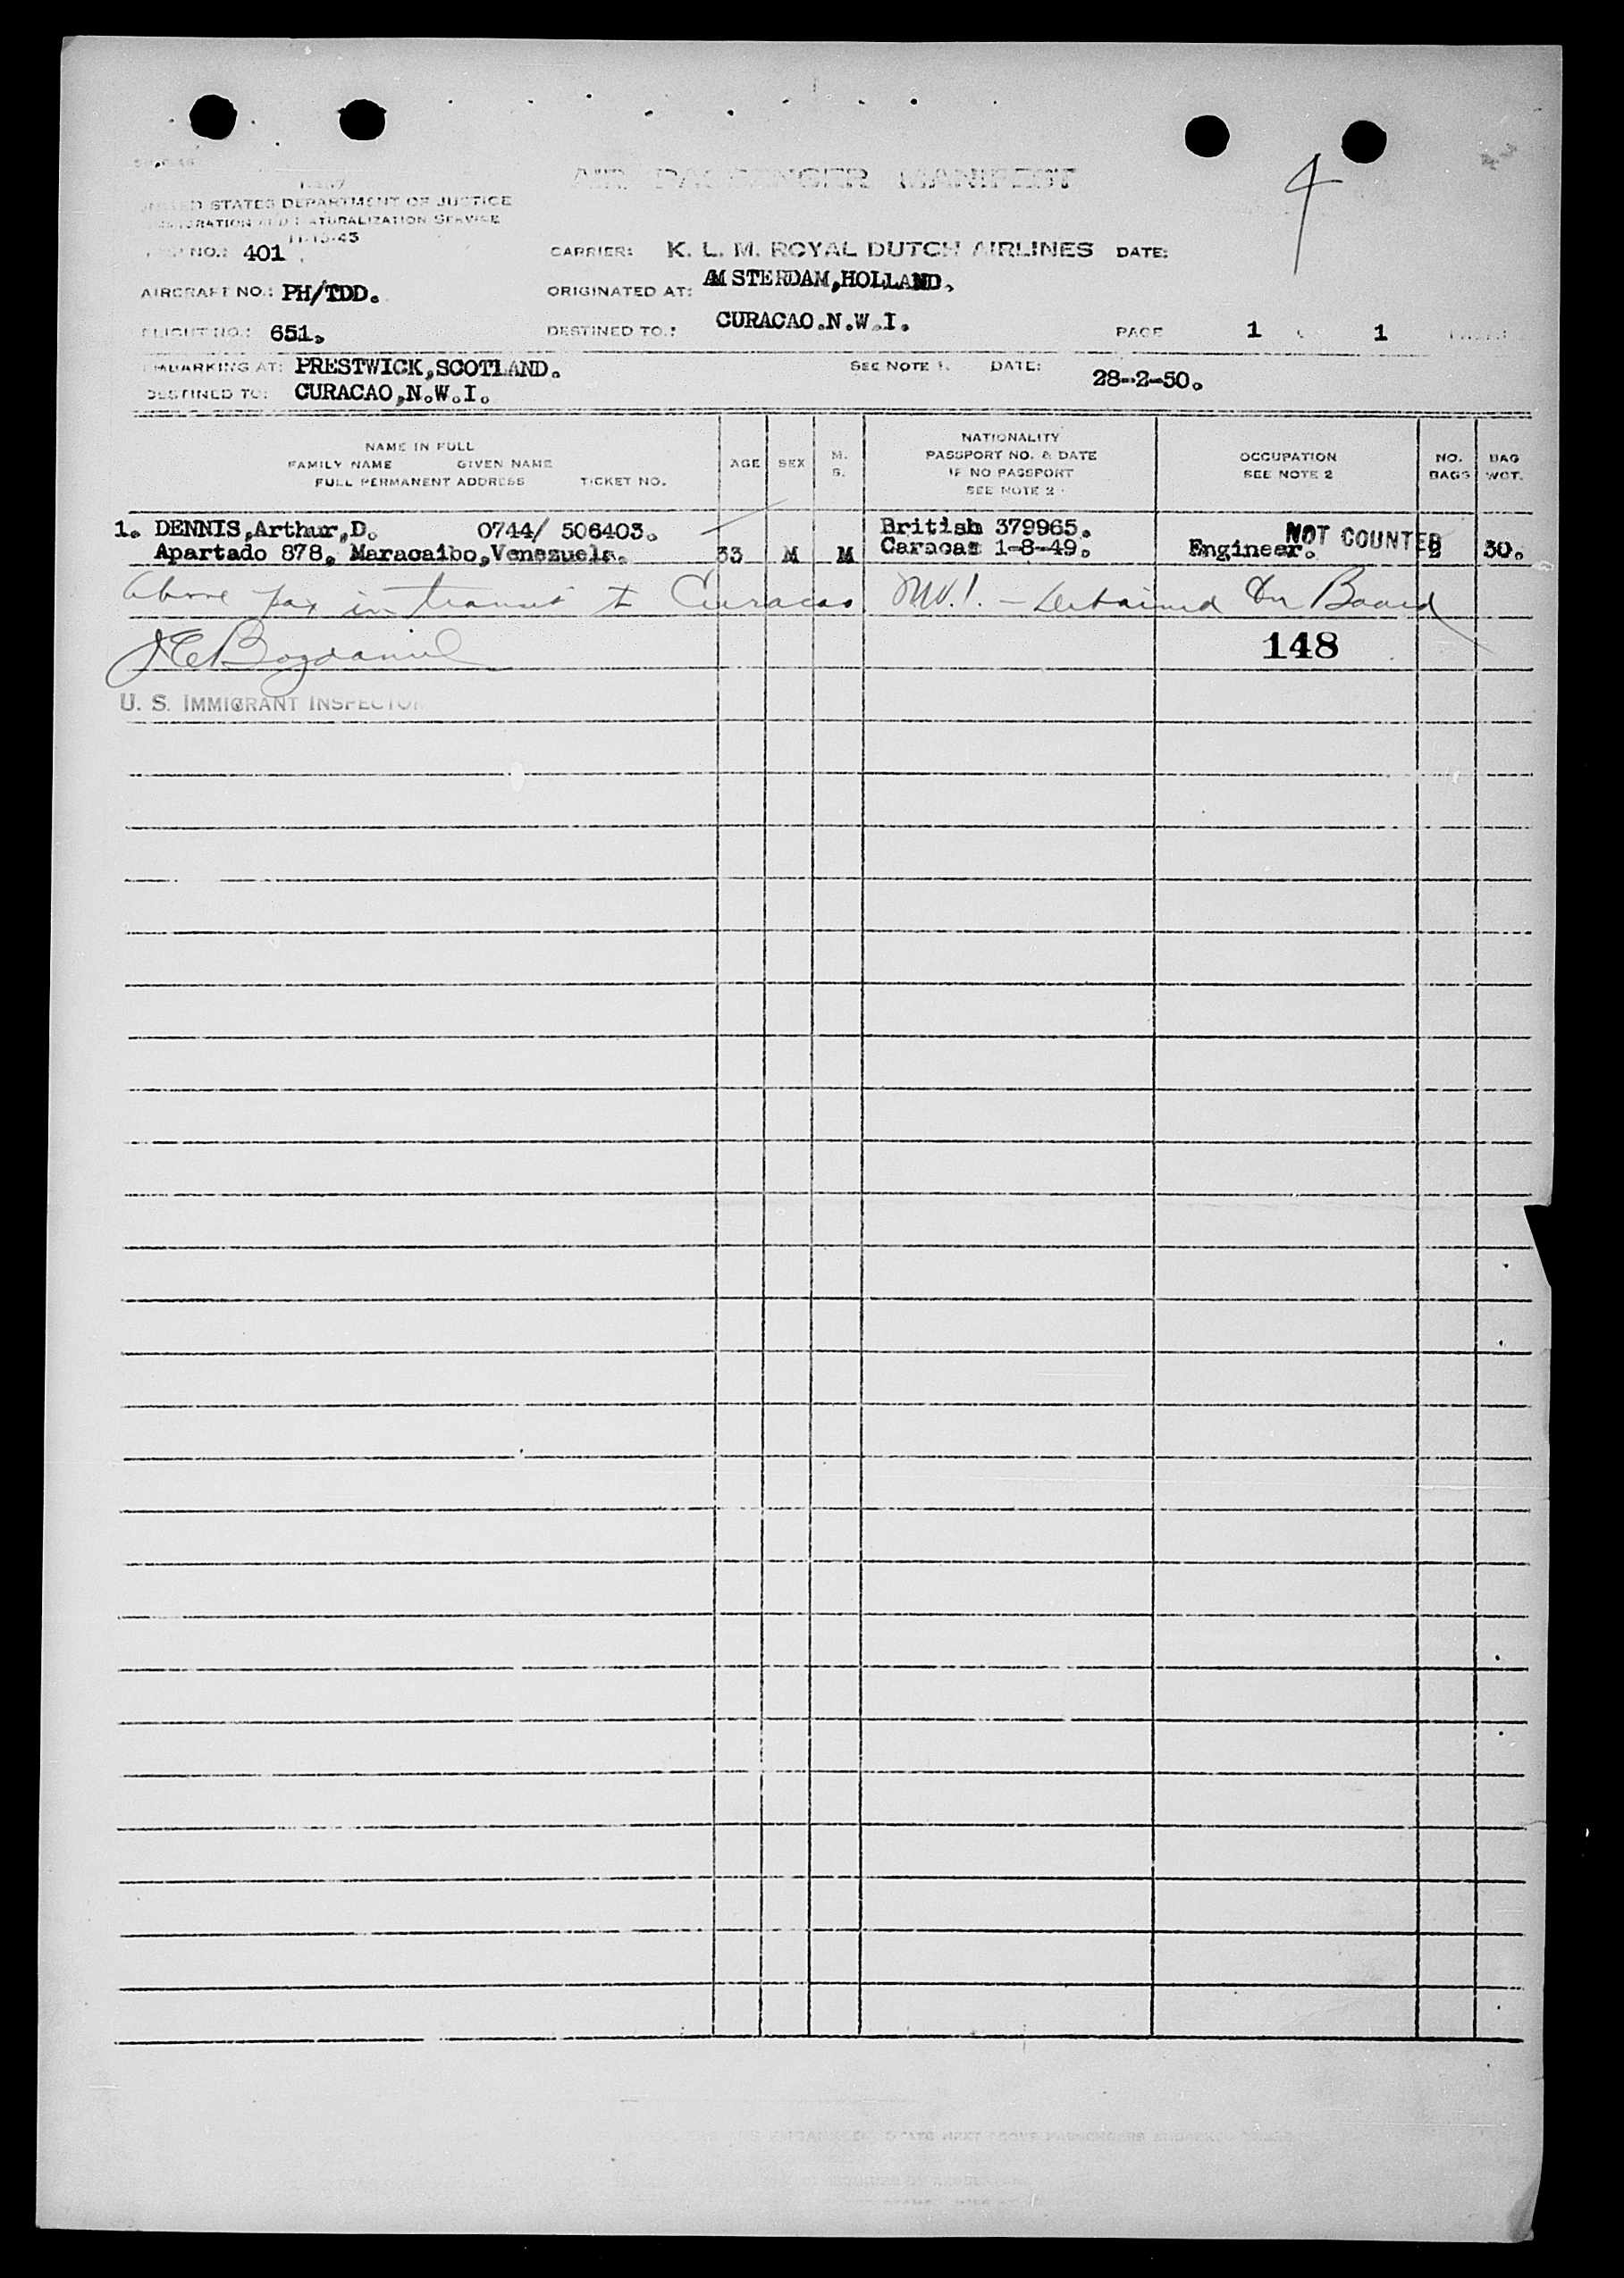 4
AIR PASSENGER MANIFEST
UNITED STATES DEPARTMENT OF JUSTICE
IMMIGRATION AND NATURALIZATION SERVICE
11-15-45
NO.: 401 CARRIER: K. L. M. ROYAL DUTCH AIRLINES DATE:
AIRCRAFT NO.: PH/TDD. ORIGINATED AT: AMSTERDAM,HOLLAND.
FLIGHT NO.: 651. DESTINED TO.: CURACAO.N.W.I. PAGE 1 1
EMBARKING AT: PRESTWICK,SCOTLAND. SEE NOTE 1. DATE: 28-2-50.
DESTINED TO: CURACAO,N.W.I.
NAME IN FULL
FAMILY NAME GIVEN NAME
FULL PERMANENT ADDRESS TICKET NO.
AGE
SEX
M.
S.
NATIONALITY
PASSPORT NO. & DATE
IF NO PASSPORT
SEE NOTE 2
OCCUPATION
SEE NOTE 2
NO.
BAGS
BAG
WGT.
1. DENNIS,Arthur,D. 0744/ 506403. British 379965. NOT COUNTED
Apartado 878. Maracaibo,Venezuela. 33 M M Caracas 1-8-49. Engineer. 2 30.
Above pax in transit to Curacao N.W.I. — Detained On Board
J E Bogdaniel 148
U. S. IMMIGRANT INSPECTOR